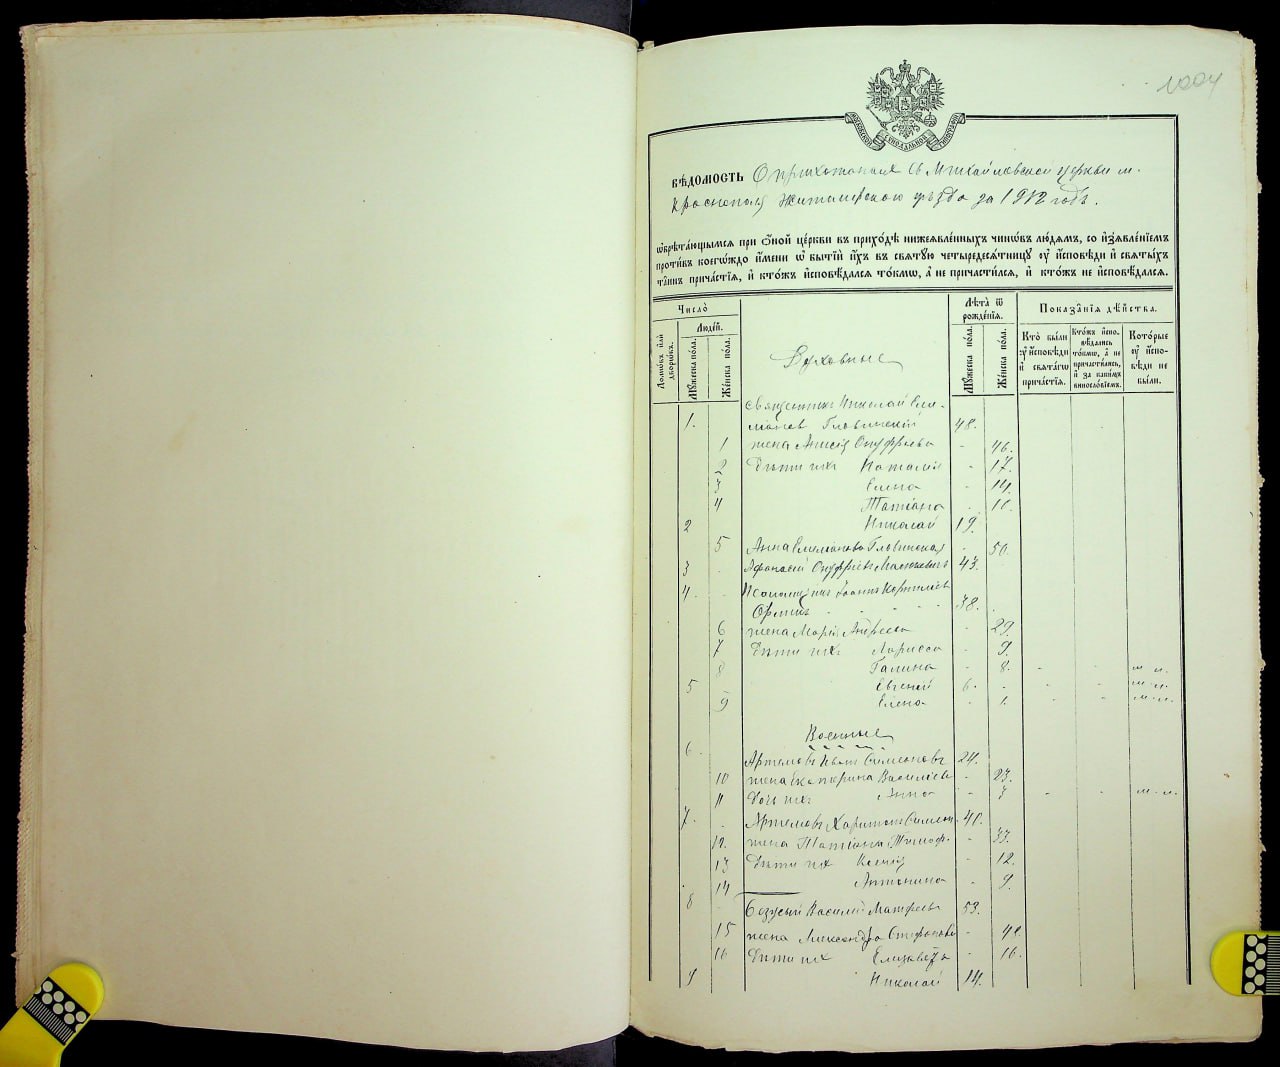 1004
МОСКОВСКОЙ СѴНОДАЛЬНОЙ ТИПОГРАФІИ
ВѢДОМОСТЬ О прихожанах Св Михайловской церкви м.
Краснополя Житомирскаго уѣзда за 1912 годъ.
ѡ҆брѣта́ющымсѧ при ѻ҆́ной це́ркви въ прихо́дѣ нижеѧвле́нныхъ чинѡ́въ лю́демъ, со и҆з̾ѧвле́нїемъ
про́тивъ коегѡ́ждо и҆́мени ѡ҆ бытїѝ и҆́хъ въ свѧту́ю четыредесѧ́тницу оу҆ и҆сповѣ́ди и҆ свѧты́хъ
та̑инъ прича́стїѧ, и҆ кто́жъ и҆сповѣ́дался то́кмѡ, а҆ не причасти́лсѧ, и҆ кто́жъ не и҆сповѣ́дался.
Число̀
Лѣ́та ѿ рожде́нїѧ.
Показа̑нїѧ дѣ́йства.
Домѡ́въ и҆лѝ дворѡ́въ.
Люде́й.
Му́жеска по́ла.
Же́нска по́ла.
Му́жеска по́ла.
Же́нска по́ла.
Кто̀ бы́ли оу҆ и҆сповѣ́ди и҆ свѧта́гѡ прича́стїѧ.
Кто́жъ и҆сповѣ́дались то́кмѡ, а҆ не причасти́лись, и҆ за каки́мъ винословїемъ.
Кото́рые оу҆ и҆сповѣ́ди не бы́ли.
Духовные
Священникъ Николай Емел-
1. ьановъ Гловинскій 48.
1 жена Анисія Онуфріева - 46.
2 Дѣти ихъ Наталія - 17.
3 Елена - 14.
4 Татіана - 10.
2 Николай 19.
5 Анна Емеліанова Гловинская - 50.
3 Афанасій Онуфріевъ 43.
4. Псаломщикъ Іоаннъ Корниліевъ
38.
6 жена Марія Андреева - 29.
7 Дѣти ихъ Лариссa - 9.
8 Галина - 8. - - м. л.
5 Евгеній 6. - - - м. л.
9 Елена - 1. - - м. л.
Военные
6. Артемовъ Иванъ Симеоновъ 24.
10 жена Екатерина Василіева - 23.
11 Дочь ихъ Анна - 3 - - м. л.
7. Артемовъ Харитонъ Симеон. 40.
12. жена Татіана Тимоф. - 33.
13 Дѣти ихъ Ксенія - 12.
14 Антонина - 9.
8 Безусый Василій Матѳеевъ 53.
15 жена Александра Стефанова - 42.
16 Дѣти ихъ Елизавета - 16.
9 Николай 14.